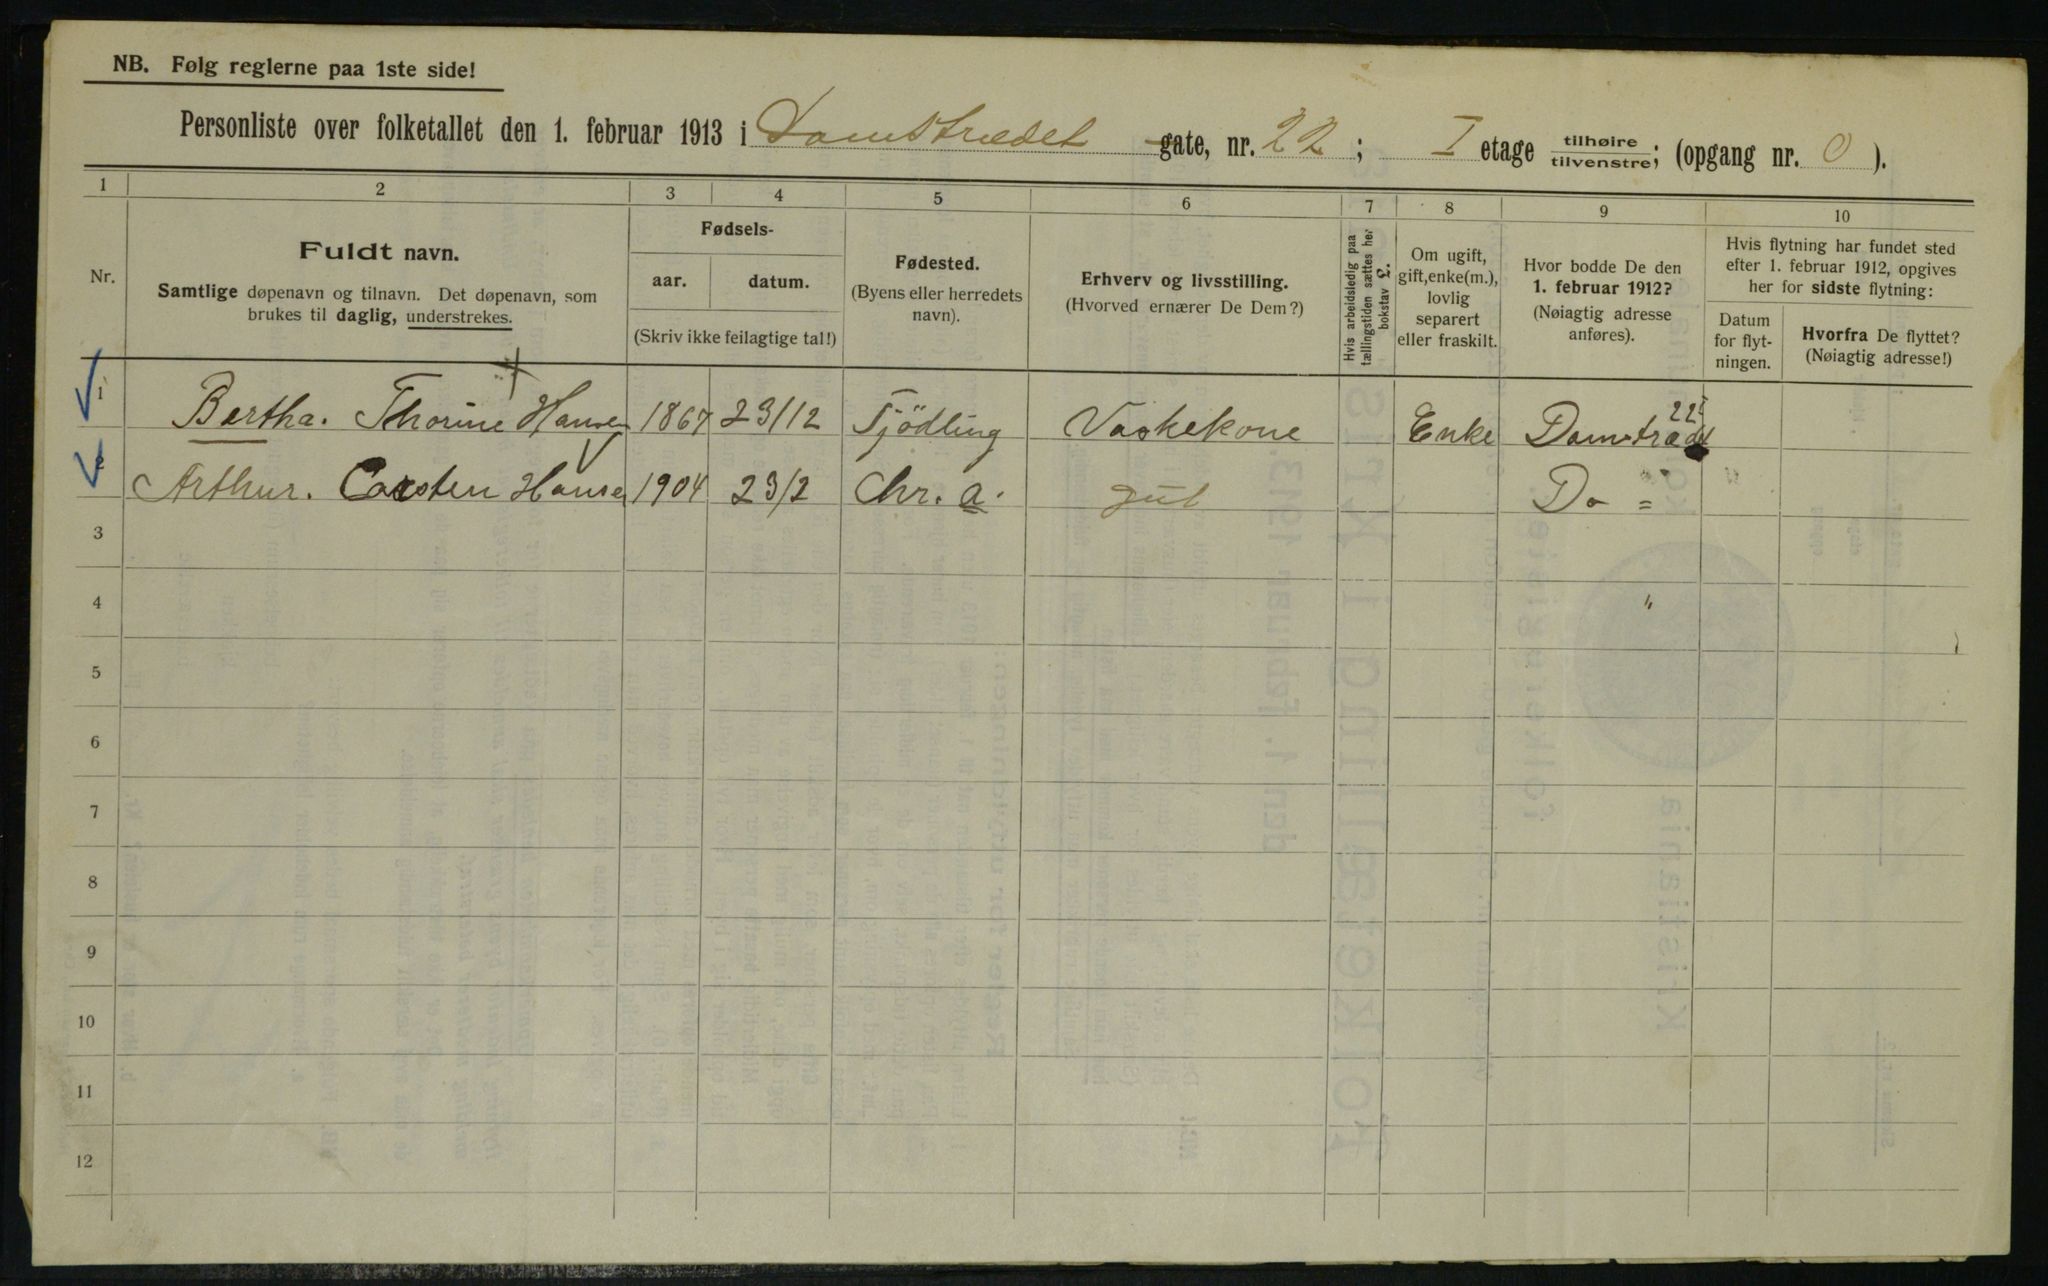 NB. Følg reglerne paa 1ste side!
Personliste over folketallet den 1. februar 1913 i Damstrædet gate, nr. 22; I etage tilhøire/tilvenstre; (opgang nr. 0).
1 2 3 4 5 6 7 8 9 10
Nr.
Fuldt navn.
Samtlige døpenavn og tilnavn. Det døpenavn, som
brukes til daglig, understrekes.
Fødsels-
aar. datum.
(Skriv ikke feilagtige tal!)
Fødested.
(Byens eller herredets
navn).
Erhverv og livsstilling.
(Hvorved ernærer De Dem?)
Hvis arbeidsledig paa
tællingstiden sættes her
bokstav L.
Om ugift,
gift, enke(m.),
lovlig
separert
eller fraskilt.
Hvor bodde De den
1. februar 1912?
(Nøiagtig adresse
anføres).
Hvis flytning har fundet sted
efter 1. februar 1912, opgives
her for sidste flytning:
Datum
for flyt-
ningen.
Hvorfra De flyttet?
(Nøiagtig adresse!)
1 Bertha. Thorine Hansen 1867 23/12 Tjödling Vaskekone Enke Damstrædet 22 I
2 Arthur. Carsten Hansen 1904 23/2 Chr. a. gut Do =
3
4 "
5
6
7
8
9
10
11
12